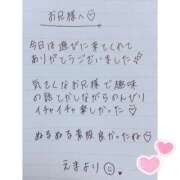 お兄様へ♡
今日は遊びに来てくれて
ありがとうございました
気さくなお兄様で趣味
の話とかしながらのんびり
イチャイチャ楽しかった♡
ぬるぬる素股良かったね♡
えまより